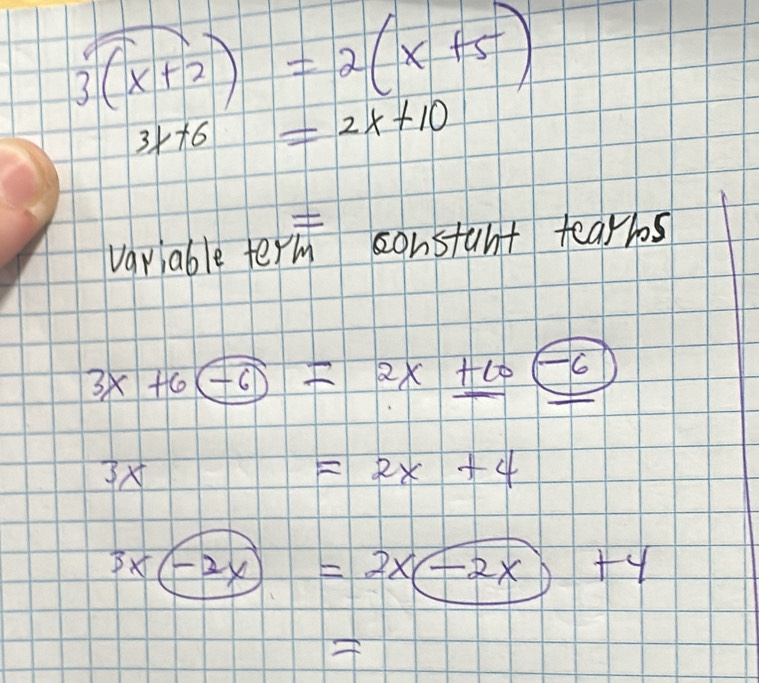 3(x+2) = 2(x+5)
3x+6 = 2x+10
=
variable term constant tearms
3x +6 -6 = 2x +10 -6
3x = 2x +4
3x -2x = 2x -2x +4
=